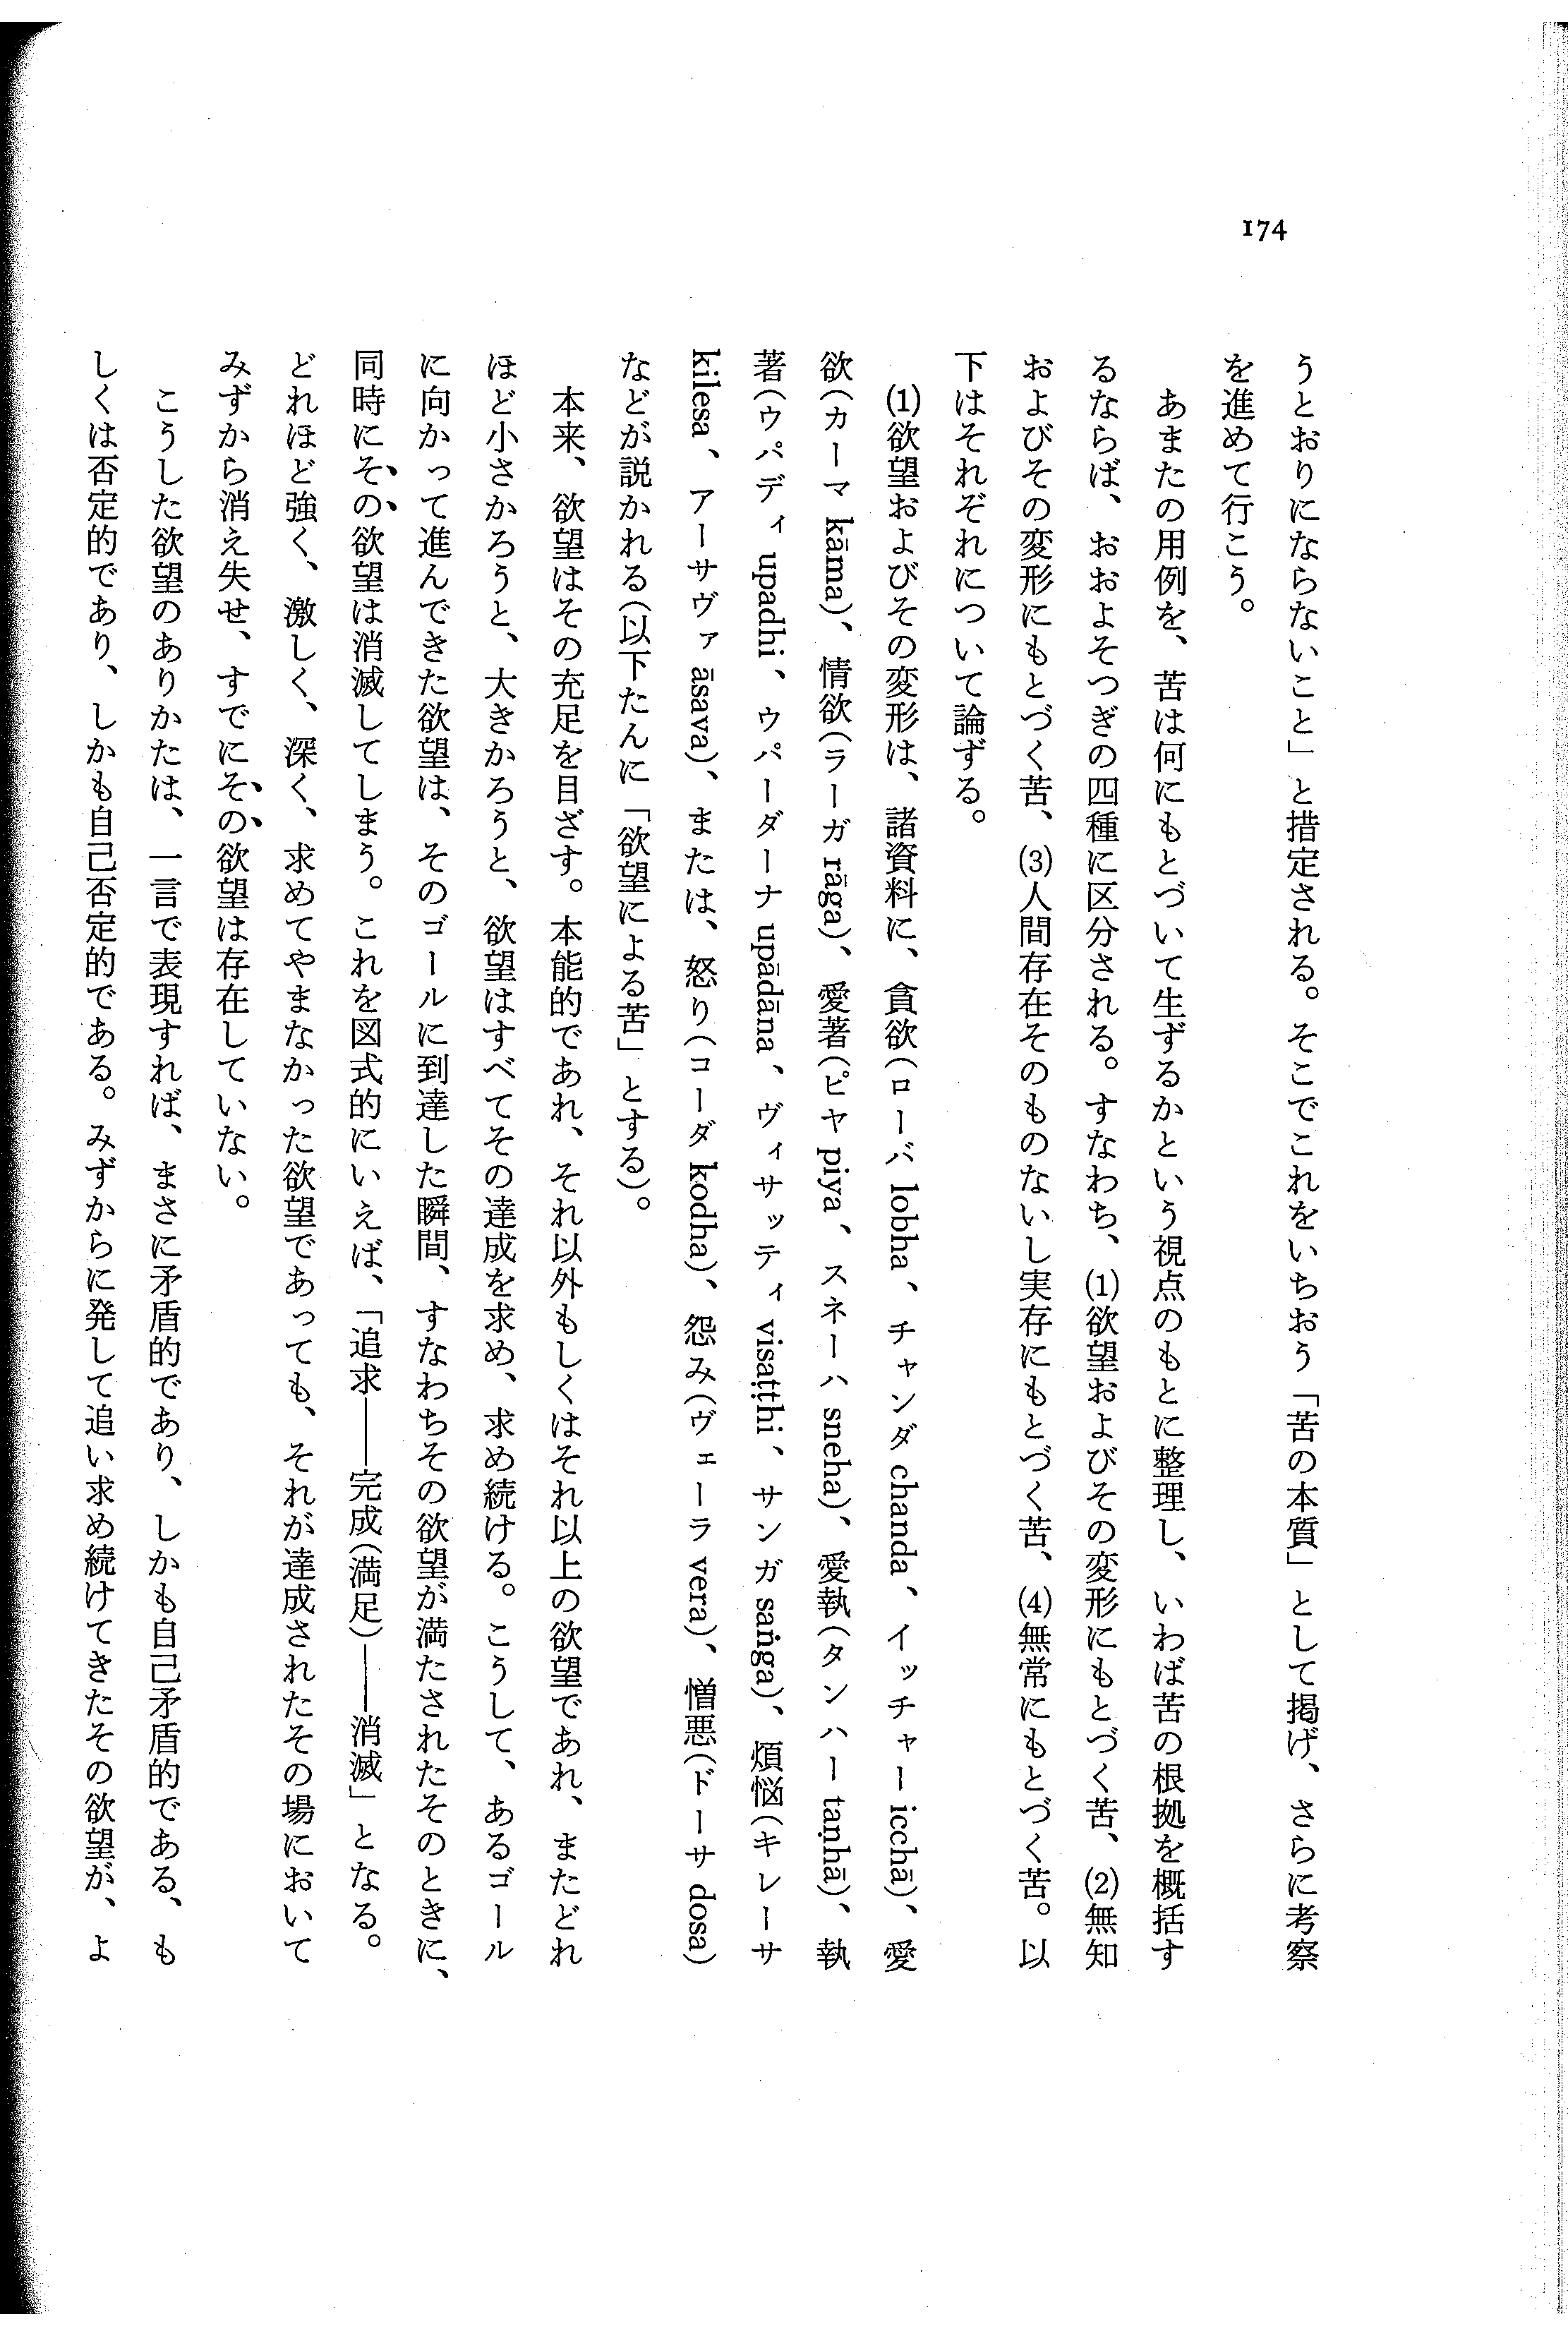 174
うとおりにならないこと」と措定される。そこでこれをいちおう「苦の本質」として掲げ、さらに考察
を進めて行こう。
あまたの用例を、苦は何にもとづいて生ずるかという視点のもとに整理し、いわば苦の根拠を概括す
るならば、おおよそつぎの四種に区分される。すなわち、(1)欲望およびその変形にもとづく苦、(2)無知
およびその変形にもとづく苦、(3)人間存在そのものないし実存にもとづく苦、(4)無常にもとづく苦。以
下はそれぞれについて論ずる。
(1)欲望およびその変形は、諸資料に、貪欲(ローバ lobha、チャンダ chanda、イッチャー icchā)、愛
欲(カーマ kāma)、情欲(ラーガ rāga)、愛著(ピヤ piya、スネーハ sneha)、愛執(タンハー taṇhā)、執
著(ウパディ upadhi、ウパーダーナ upādāna、ヴィサッティ visaṭṭhi、サンガ saṅga)、煩悩(キレーサ
kilesa、アーサヴァ āsava)、または、怒り(コーダ kodha)、怨み(ヴェーラ vera)、憎悪(ドーサ dosa)
などが説かれる(以下たんに「欲望による苦」とする)。
本来、欲望はその充足を目ざす。本能的であれ、それ以外もしくはそれ以上の欲望であれ、またどれ
ほど小さかろうと、大きかろうと、欲望はすべてその達成を求め、求め続ける。こうして、あるゴール
に向かって進んできた欲望は、そのゴールに到達した瞬間、すなわちその欲望が満たされたそのときに、
同時にその欲望は消滅してしまう。これを図式的にいえば、「追求——完成(満足)——消滅」となる。
どれほど強く、激しく、深く、求めてやまなかった欲望であっても、それが達成されたその場において
みずから消え失せ、すでにその欲望は存在していない。
こうした欲望のありかたは、一言で表現すれば、まさに矛盾的であり、しかも自己矛盾的である、も
しくは否定的であり、しかも自己否定的である。みずからに発して追い求め続けてきたその欲望が、よ